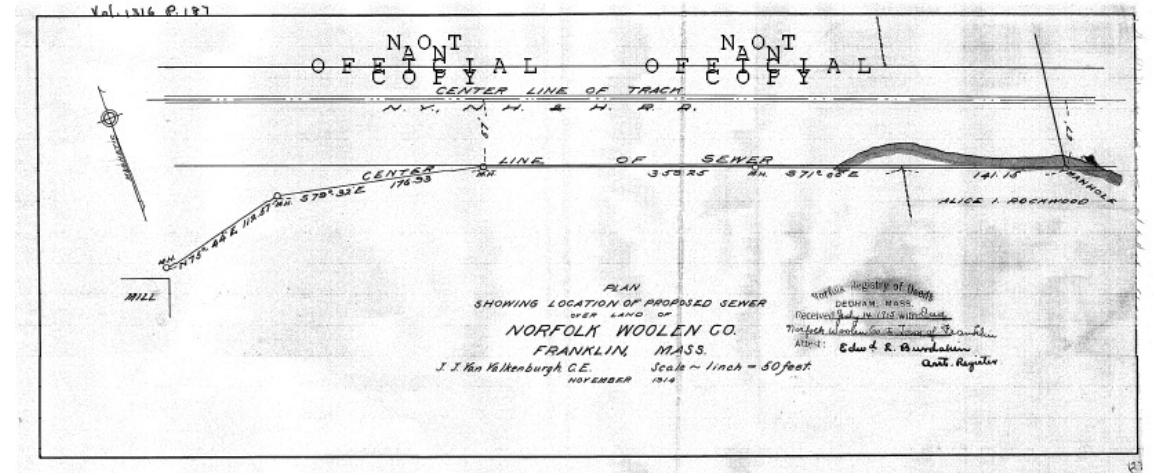 Vol. 1316 P. 187
NOT NOT
AN AN
OFFICIAL OFFICIAL
COPY COPY
CENTER LINE OF TRACK
N.Y., N.H. & H. R.R.
MAGNETIC
CENTER LINE OF SEWER
M.H. N 75° 44' E. 112.57
M.H. S 79° 32' E 176.93
M.H. 353.25 M.H. S 71° 05' E 141.15 MANHOLE
ALICE I. ROCKWOOD
MILL
PLAN
SHOWING LOCATION OF PROPOSED SEWER
OVER LAND OF
NORFOLK WOOLEN CO.
FRANKLIN, MASS.
J. J. Van Valkenburgh C.E. Scale ~ 1 inch = 50 feet.
NOVEMBER 1914
Norfolk Registry of Deeds
DEDHAM, MASS.
Received July 14 1915 with Deed
Norfolk Woolen Co to Town of Franklin
Attest: Edw'd L. Burdakin
Asst. Register